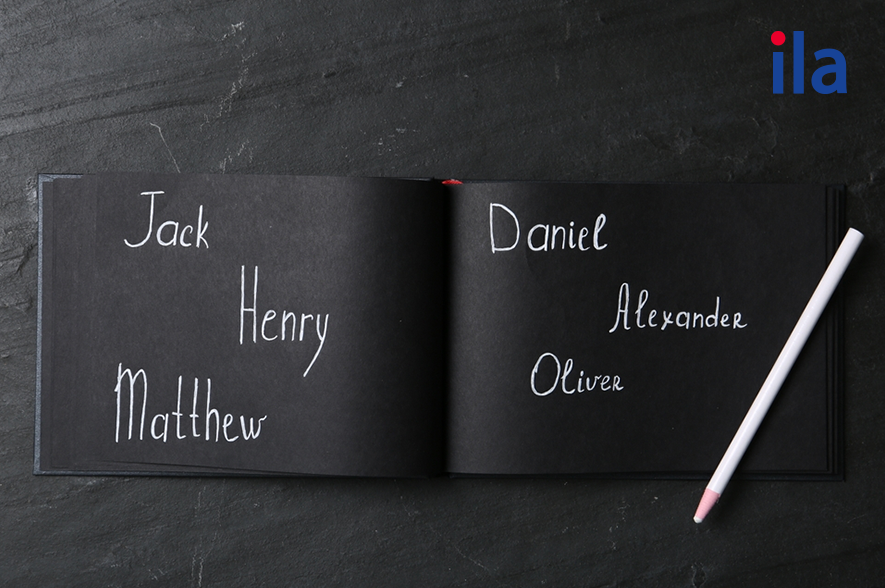 ila
Jack
Henry
Matthew
Daniel
Alexander
Oliver